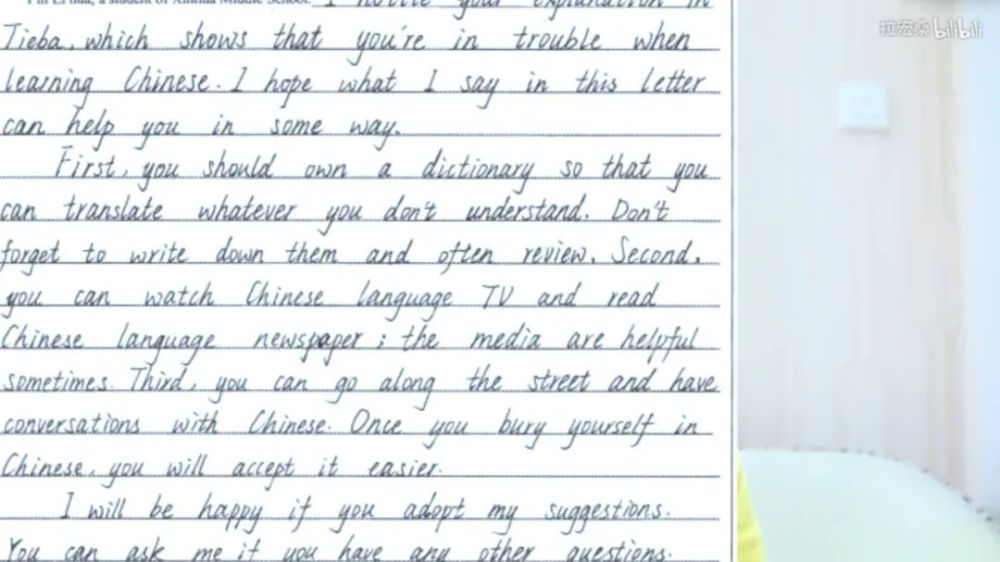 I'm Li Hua, a student of Xinhua Middle School. I notice your explanation in
Tieba, which shows that you're in trouble when
learning Chinese. I hope what I say in this letter
can help you in some way.
First, you should own a dictionary so that you
can translate whatever you don't understand. Don't
forget to write down them and often review. Second,
you can watch Chinese language TV and read
Chinese language newspaper; the media are helpful
sometimes. Third, you can go along the street and have
conversations with Chinese. Once you bury yourself in
Chinese, you will accept it easier.
I will be happy if you adopt my suggestions.
You can ask me if you have any other questions.
拉宏桑 bilibili